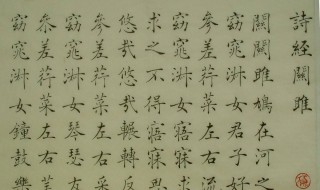 詩經關雎
關關雎鳩在河之
窈窕淑女君子好
參差荇菜左右流
窈窕淑女寤寐
求之不得寤寐思
悠哉悠哉輾轉反
參差荇菜左右采
窈窕淑女琴瑟友
參差荇菜左右芼
窈窕淑女鐘鼓樂